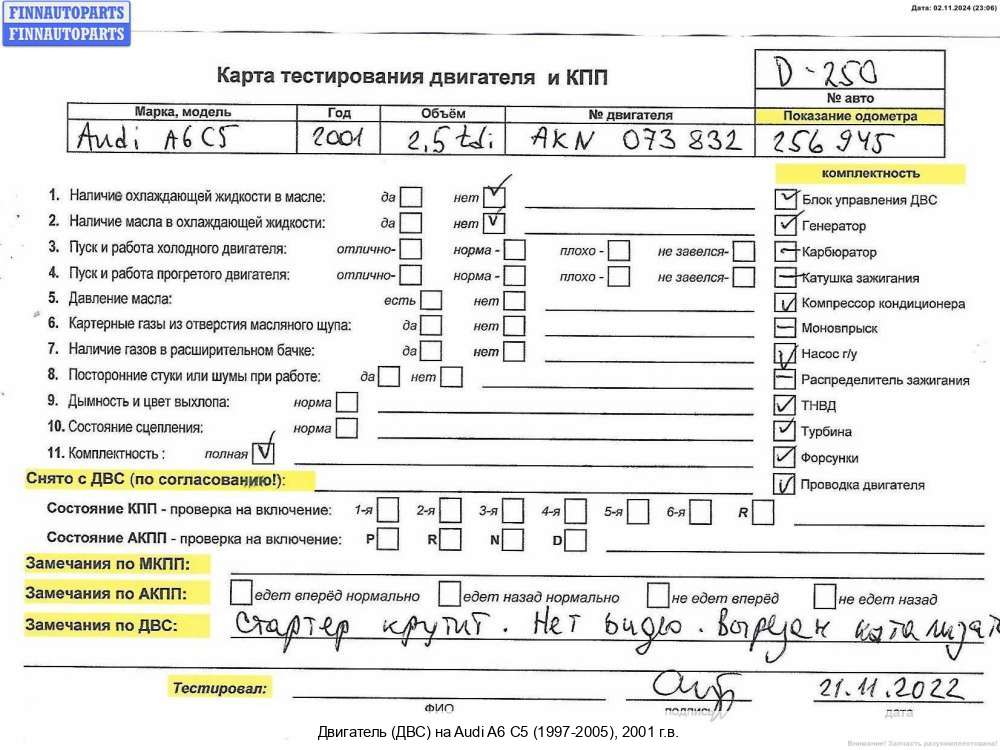 Дата: 02.11.2024 (23:06)
FINNAUTOPARTS
FINNAUTOPARTS
Карта тестирования двигателя и КПП
D-250
№ авто
Марка, модель Год Объём № двигателя Показание одометра
Audi A6 C5 2001 2,5 tdi AKN 073 832 256 945
комплектность
1. Наличие охлаждающей жидкости в масле: да нет
Блок управления ДВС
2. Наличие масла в охлаждающей жидкости: да нет
Генератор
3. Пуск и работа холодного двигателя: отлично- норма - плохо - не завелся-
Карбюратор
4. Пуск и работа прогретого двигателя: отлично- норма - плохо - не завелся-
Катушка зажигания
5. Давление масла: есть нет
Компрессор кондиционера
6. Картерные газы из отверстия масляного щупа: да нет
Моновпрыск
7. Наличие газов в расширительном бачке: да нет
Насос г/у
8. Посторонние стуки или шумы при работе: да нет
Распределитель зажигания
9. Дымность и цвет выхлопа: норма
ТНВД
10. Состояние сцепления: норма
Турбина
11. Комплектность : полная
Форсунки
Снято с ДВС (по согласованию!):
Проводка двигателя
Состояние КПП - проверка на включение: 1-я 2-я 3-я 4-я 5-я 6-я R
Состояние АКПП - проверка на включение: P R N D
Замечания по МКПП:
Замечания по АКПП: едет вперёд нормально едет назад нормально не едет вперёд не едет назад
Замечания по ДВС: Стартер крутит. Нет видео. Вырезан катализат
Тестировал: 21.11.2022
ФИО подпись дата
Двигатель (ДВС) на Audi A6 C5 (1997-2005), 2001 г.в.
Внимание! Запчасть разукомплектована!